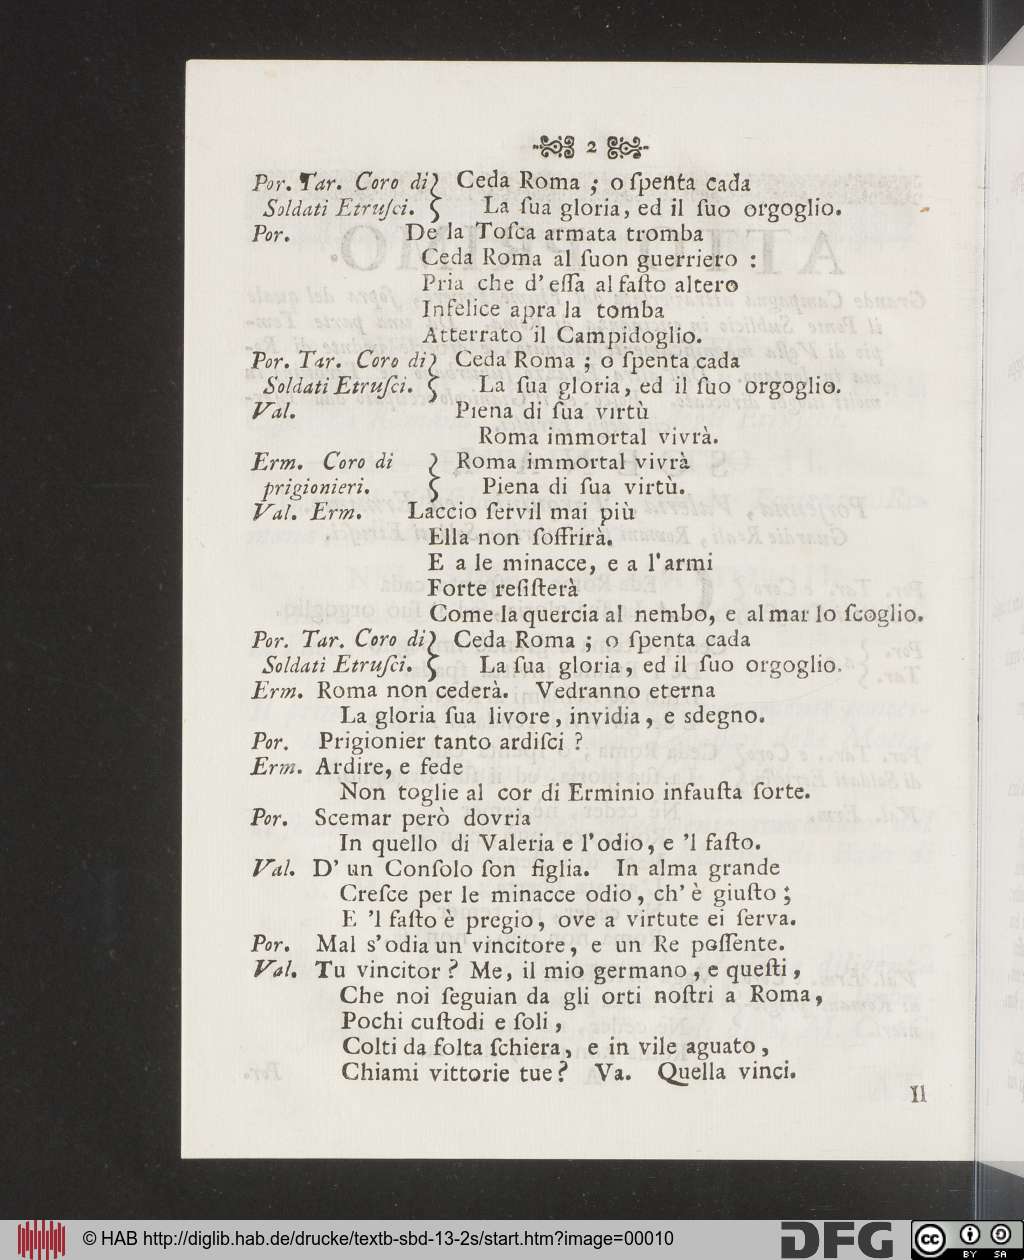 2
Por. Tar. Coro di} Ceda Roma ; o ſpenta cada
Soldati Etruſci. } La ſua gloria, ed il ſuo orgoglio.
Por. De la Toſca armata tromba
Ceda Roma al ſuon guerriero :
Pria che d' eſſa al faſto altero
Infelice apra la tomba
Atterrato il Campidoglio.
Por. Tar. Coro di} Ceda Roma ; o ſpenta cada
Soldati Etruſci. } La ſua gloria, ed il ſuo orgoglio.
Val. Piena di ſua virtù
Roma immortal vivrà.
Erm. Coro di } Roma immortal vivrà
prigionieri. } Piena di ſua virtù.
Val. Erm. Laccio ſervil mai più
Ella non ſoffrirà.
E a le minacce, e a l'armi
Forte reſiſterà
Come la quercia al nembo, e al mar lo ſcoglio.
Por. Tar. Coro di} Ceda Roma ; o ſpenta cada
Soldati Etruſci. } La ſua gloria, ed il ſuo orgoglio.
Erm. Roma non cederà. Vedranno eterna
La gloria ſua livore, invidia, e sdegno.
Por. Prigionier tanto ardiſci ?
Erm. Ardire, e fede
Non toglie al cor di Erminio infauſta ſorte.
Por. Scemar però dovria
In quello di Valeria e l'odio, e 'l faſto.
Val. D' un Conſolo ſon figlia. In alma grande
Creſce per le minacce odio, ch' è giuſto ;
E 'l faſto è pregio, ove a virtute ei ſerva.
Por. Mal s' odia un vincitore, e un Re poſſente.
Val. Tu vincitor ? Me, il mio germano, e queſti,
Che noi ſeguian da gli orti noſtri a Roma,
Pochi cuſtodi e ſoli,
Colti da folta ſchiera, e in vile aguato,
Chiami vittorie tue ? Va. Quella vinci.
Il
© HAB http://diglib.hab.de/drucke/textb-sbd-13-2s/start.htm?image=00010
DFG
cc BY SA